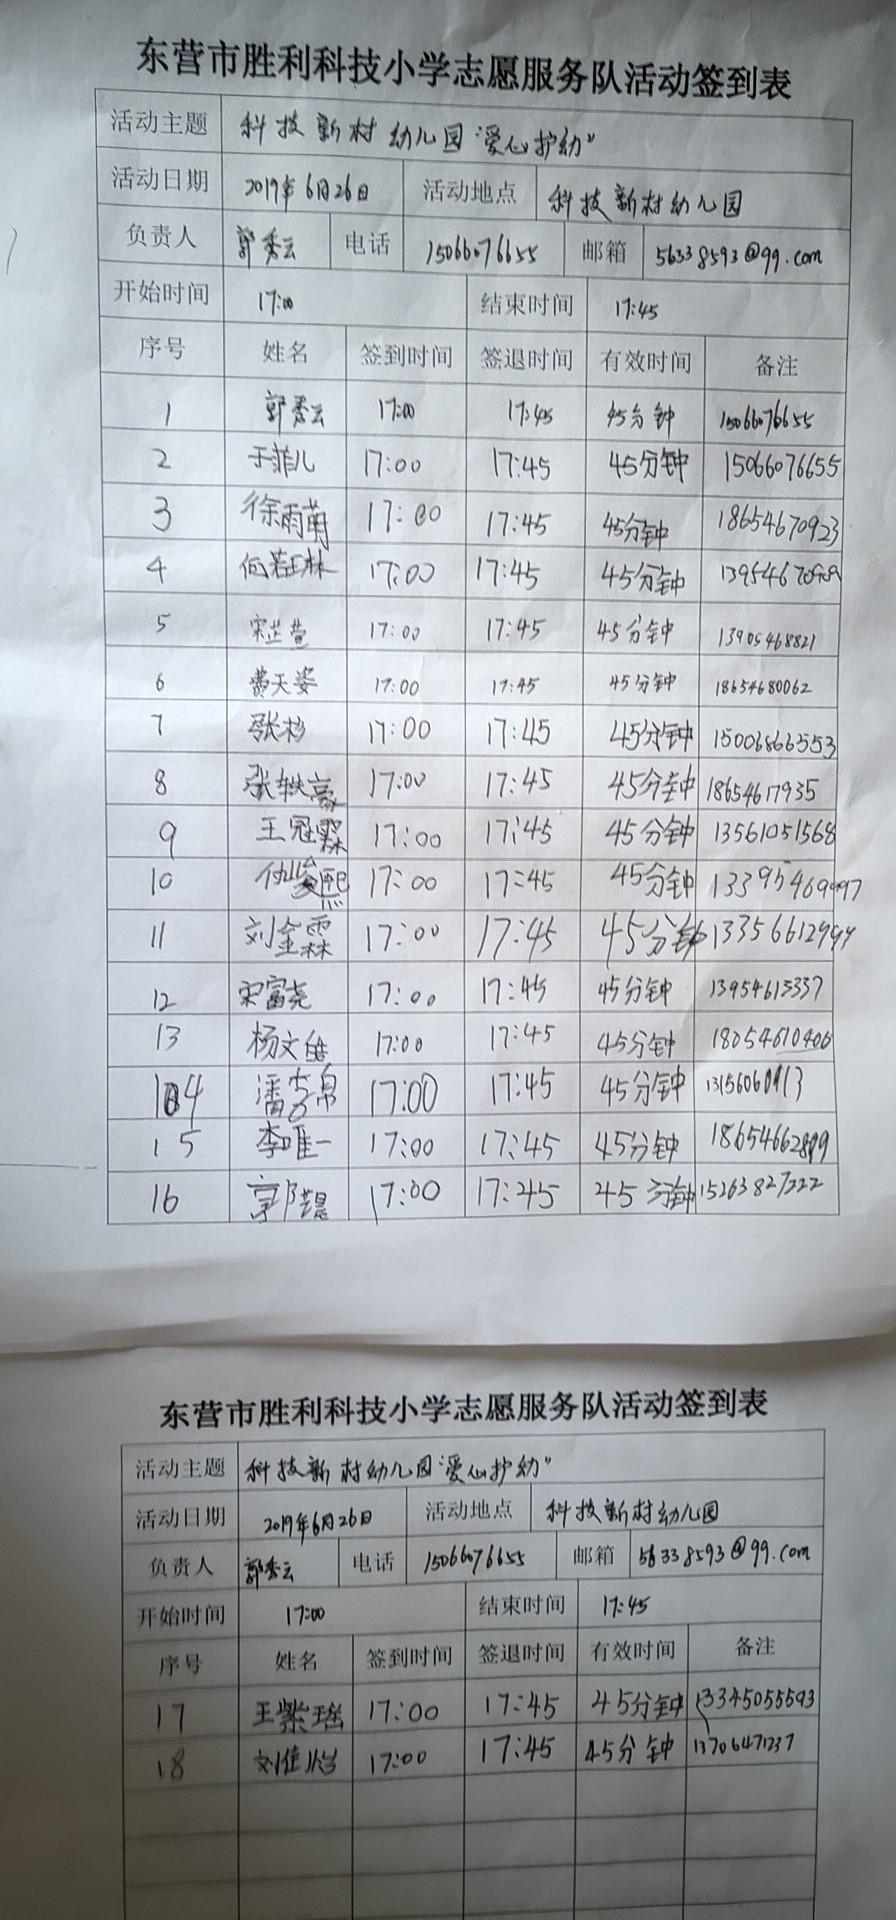 东营市胜利科技小学志愿服务队活动签到表
活动主题 科技新村幼儿园"爱心护幼"
活动日期 2019年6月26日 活动地点 科技新村幼儿园
负责人 郭秀云 电话 15066076655 邮箱 56338593@qq.com
开始时间 17:00 结束时间 17:45
序号 姓名 签到时间 签退时间 有效时间 备注
1 郭秀云 17:00 17:45 45分钟 15066076655
2 于菲儿 17:00 17:45 45分钟 15066076655
3 徐雨萌 17:00 17:45 45分钟 18654670923
4 17:00 17:45 45分钟
5 宋芷萱 17:00 17:45 45分钟 13905468821
6 费天姿 17:00 17:45 45分钟 18654680062
7 张杉 17:00 17:45 45分钟 15006866553
8 张轶豪 17:00 17:45 45分钟 18654617935
9 王冠霖 17:00 17:45 45分钟 13561051568
10 17:00 17:45 45分钟
11 刘金霖 17:00 17:45 45分钟
12 宋富尧 17:00 17:45 45分钟 13954615337
13 17:00 17:45 45分钟 18054670406
14 17:00 17:45 45分钟
15 李唯一 17:00 17:45 45分钟
16 17:00 17:45 45分钟 15263827222
东营市胜利科技小学志愿服务队活动签到表
活动主题 科技新村幼儿园"爱心护幼"
活动日期 2019年6月26日 活动地点 科技新村幼儿园
负责人 郭秀云 电话 15066076655 邮箱 56338593@qq.com
开始时间 17:00 结束时间 17:45
序号 姓名 签到时间 签退时间 有效时间 备注
17 王紫瑶 17:00 17:45 45分钟 13345055593
18 17:00 17:45 45分钟 13706471237